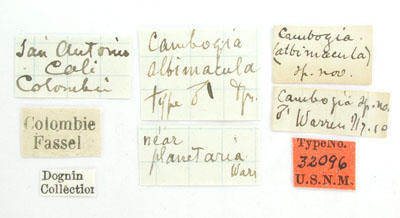 San Antonio
Cali
Colombie
Colombie
Fassel
Dognin
Collection
Cambogia
albimacula
type ♂ Dgn.
near
planetaria
Warr
Cambogia
(albimacula)
sp. nov.
Cambogia sp. no.
♂ Warren
Type No.
32096
U.S.N.M.